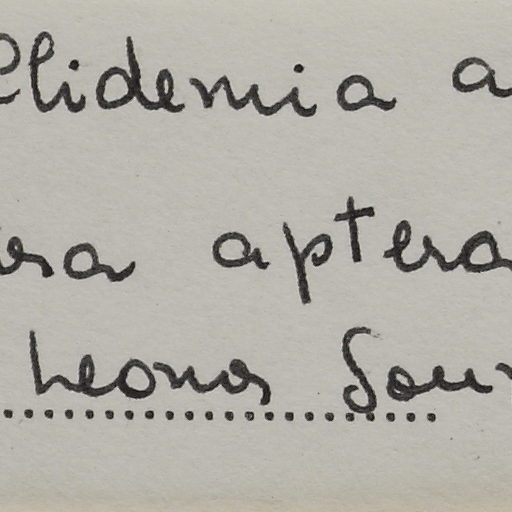 Clidemia a
aptera
Leonor Sou